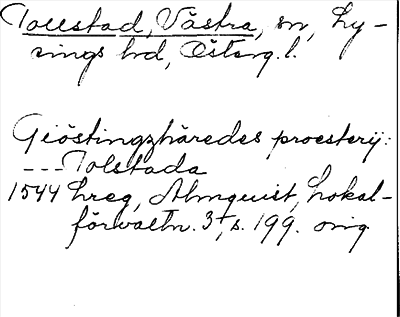 Tollstad, Västra, sn, Ly-
sings hd, Österg. l.
Giöstingzhäredes proesterij:
--- Tolstada
1544 hreg, Almquist, Lokal-
förvaltn. 3+, s. 199. orig